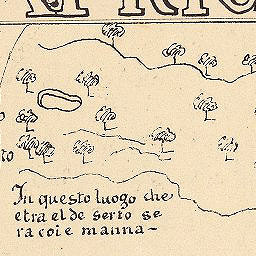 In questo luogo che
etra el de serto se
racoie manna-